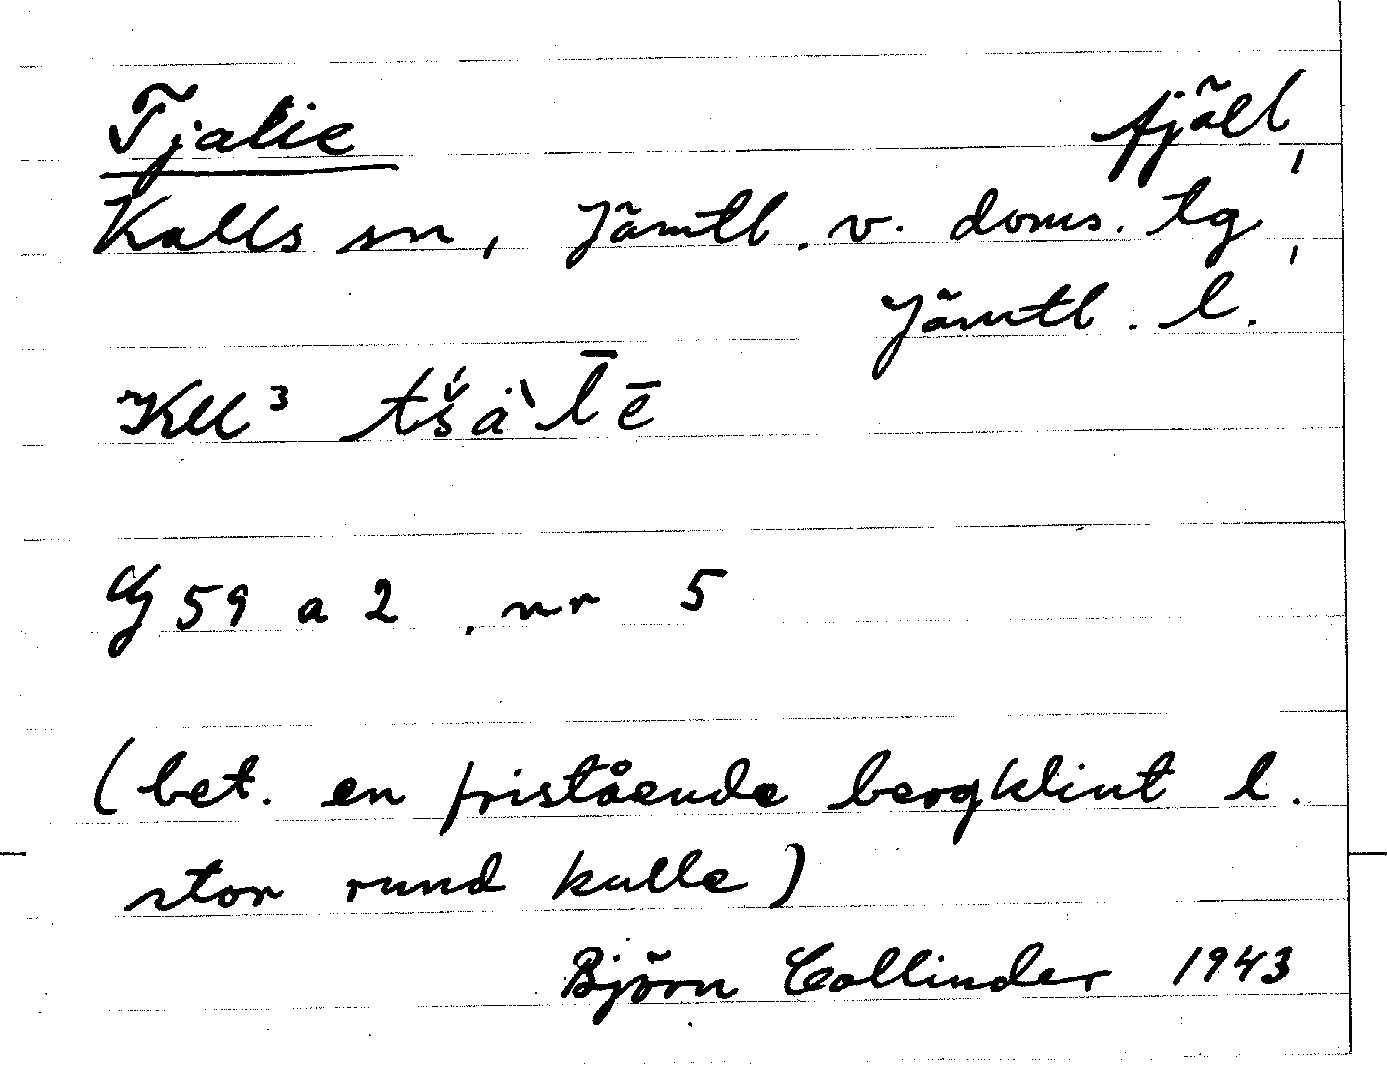 Tjalie fjäll,
Kalls sn, Jämtl. v. doms. tg,
Jämtl. l.
Kll³ tš́ȧ̀l̄ē
G 59 a 2, nr 5
(bet. en fristående bergklint l.
stor rund kulle)
Björn Collinder 1943